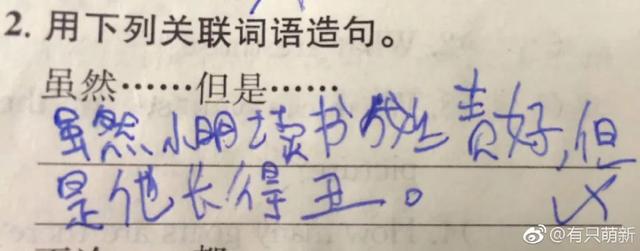 2. 用下列关联词语造句。
虽然……但是……
虽然小明读书成绩好,但
是他长得丑。
@有只萌新